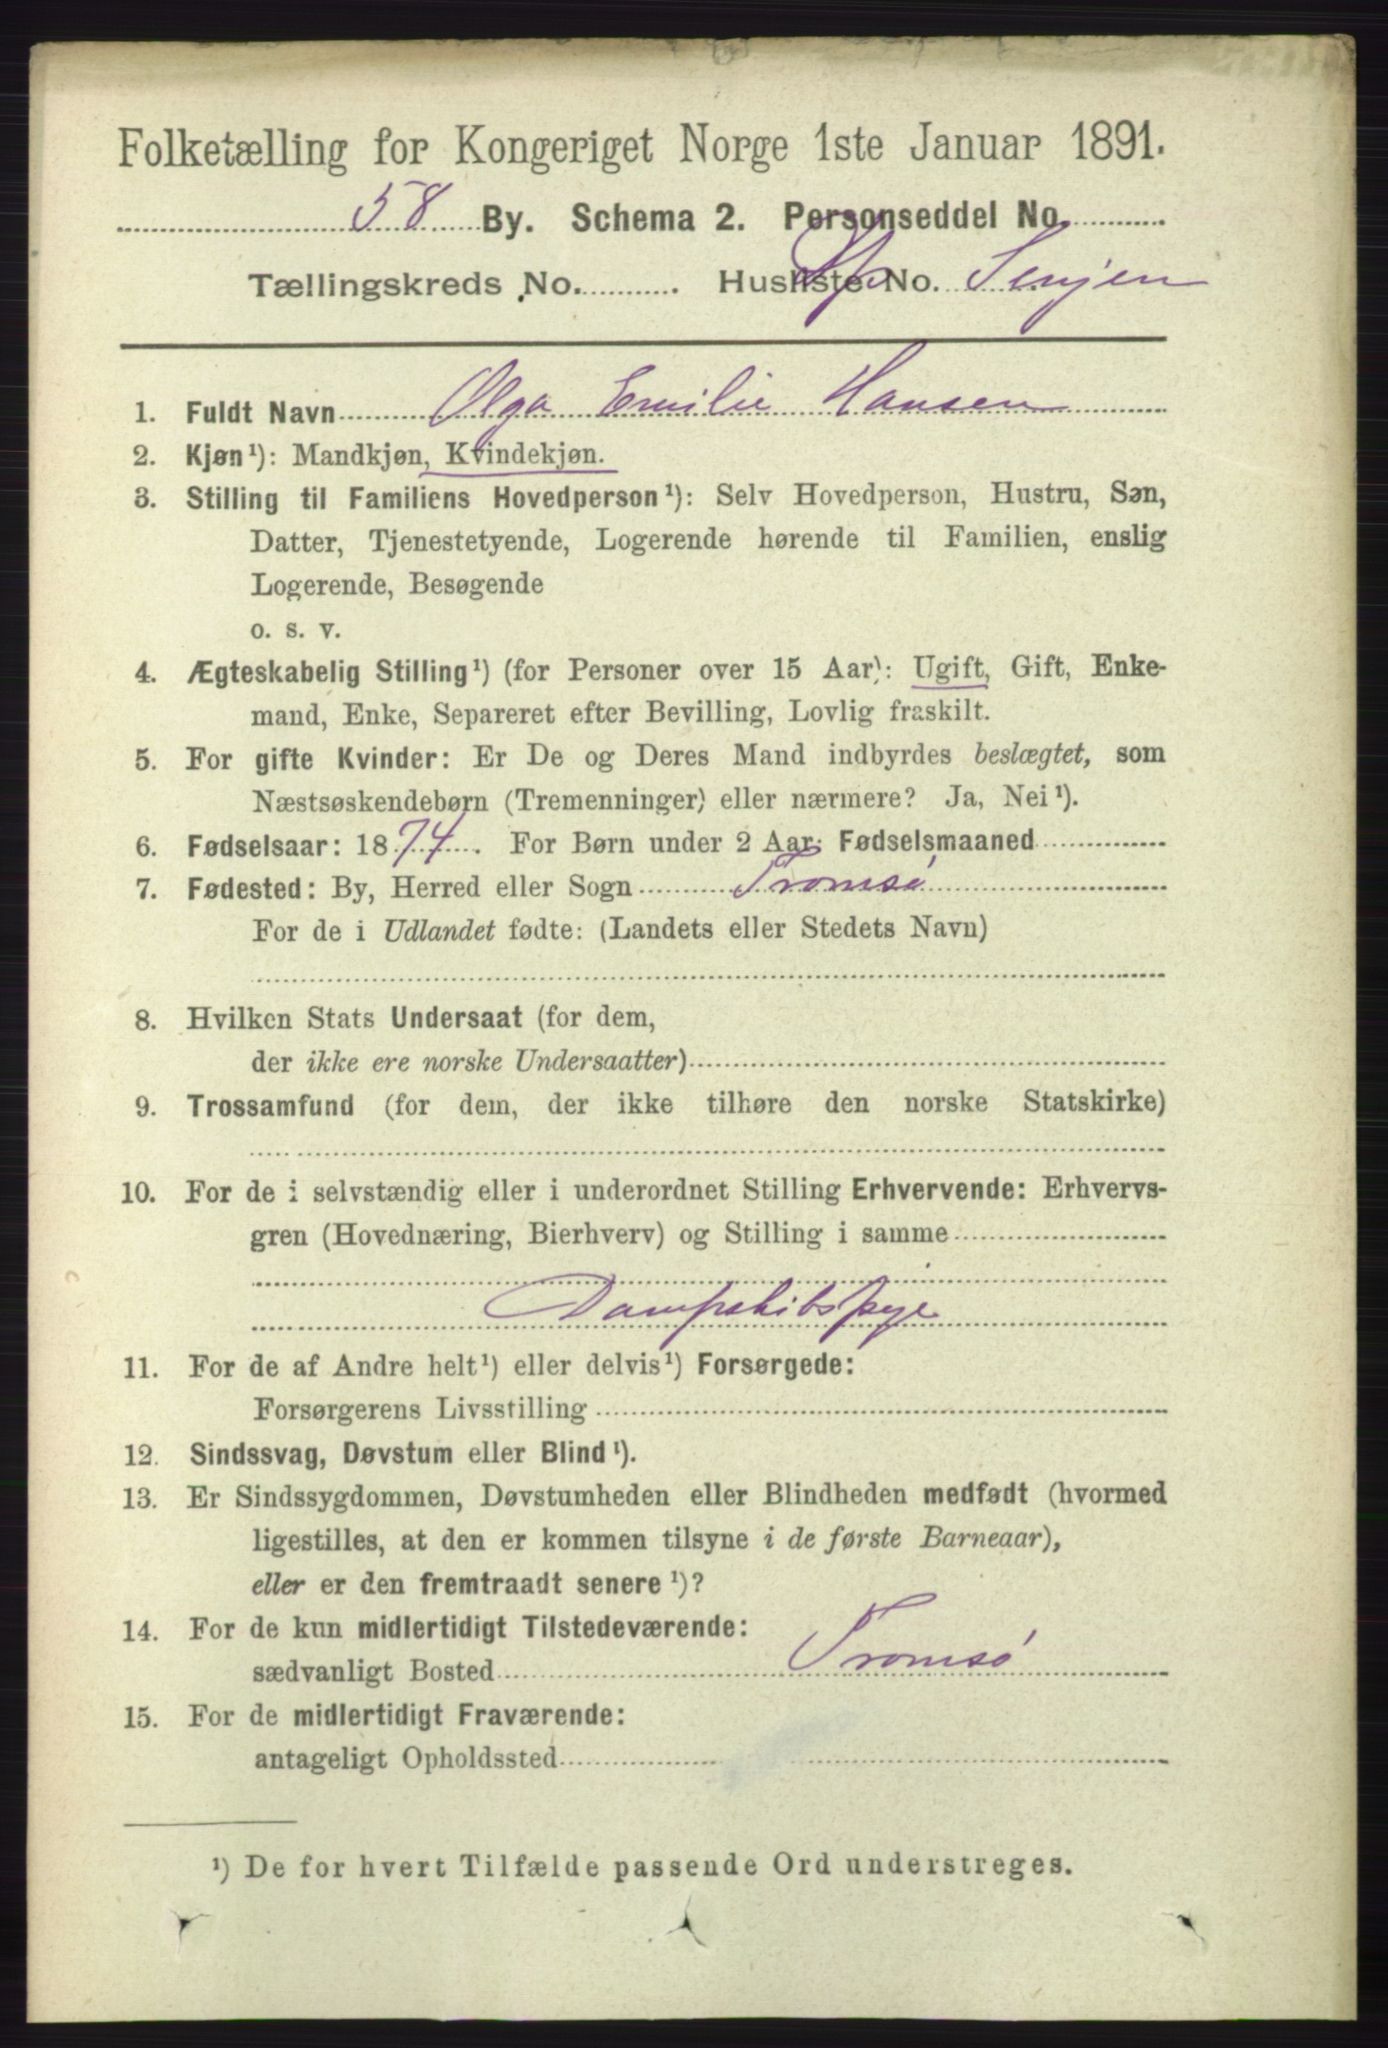 Folketælling for Kongeriget Norge 1ste Januar 1891.
58 By. Schema 2. Personseddel No.
Tællingskreds No. Husliste No. Senjen
1. Fuldt Navn Olga Emilie Hansen
2. Kjøn ¹): Mandkjøn, Kvindekjøn.
3. Stilling til Familiens Hovedperson ¹): Selv Hovedperson, Hustru, Søn,
Datter, Tjenestetyende, Logerende hørende til Familien, enslig
Logerende, Besøgende
o. s. v.
4. Ægteskabelig Stilling ¹) (for Personer over 15 Aar): Ugift, Gift, Enke-
mand, Enke, Separeret efter Bevilling, Lovlig fraskilt.
5. For gifte Kvinder: Er De og Deres Mand indbyrdes beslægtet, som
Næstsøskendebørn (Tremenninger) eller nærmere? Ja, Nei ¹).
6. Fødselsaar: 1874. For Børn under 2 Aar: Fødselsmaaned
7. Fødested: By, Herred eller Sogn Tromsø
For de i Udlandet fødte: (Landets eller Stedets Navn)
8. Hvilken Stats Undersaat (for dem,
der ikke ere norske Undersaatter)
9. Trossamfund (for dem, der ikke tilhøre den norske Statskirke)
10. For de i selvstændig eller i underordnet Stilling Erhvervende: Erhvervs-
gren (Hovednæring, Bierhverv) og Stilling i samme
Dampskibspige
11. For de af Andre helt ¹) eller delvis ¹) Forsørgede:
Forsørgerens Livsstilling
12. Sindssvag, Døvstum eller Blind ¹).
13. Er Sindssygdommen, Døvstumheden eller Blindheden medfødt (hvormed
ligestilles, at den er kommen tilsyne i de første Barneaar),
eller er den fremtraadt senere ¹)?
14. For de kun midlertidigt Tilstedeværende:
sædvanligt Bosted Tromsø
15. For de midlertidigt Fraværende:
antageligt Opholdssted
¹) De for hvert Tilfælde passende Ord understreges.